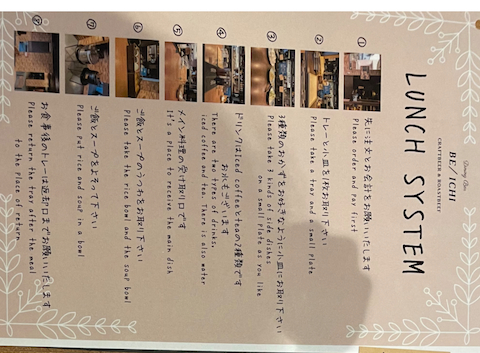 Dining Bar
BE/ICHI
CRAFTBEER & ROASTBEEF
LUNCH SYSTEM
①
先に注文とお会計をお願いいたします
Please order and Pay first
②
トレーと小皿を1枚お取り下さい
Please take a tray and a small plate
③
3種類のおかずをお好きなように小皿にお取り下さい
Please take 3 kinds of side dishes
on a small plate as you like
④
ドリンクはiced coffeeとteaの2種類です
お水もございます
There are two types of drinks,
iced coffee and tea. There is also water
⑤
メイン料理の受け取り口です
It's a place to receive the main dish
⑥
ご飯とスープのうつわをお取り下さい
Please take the rice bowl and the soup bowl
⑦
ご飯とスープをよそって下さい
Please put rice and soup in a bowl
⑧
お食事後のトレーは返却口までお願いいたします
Please return the tray after the meal
to the place of return